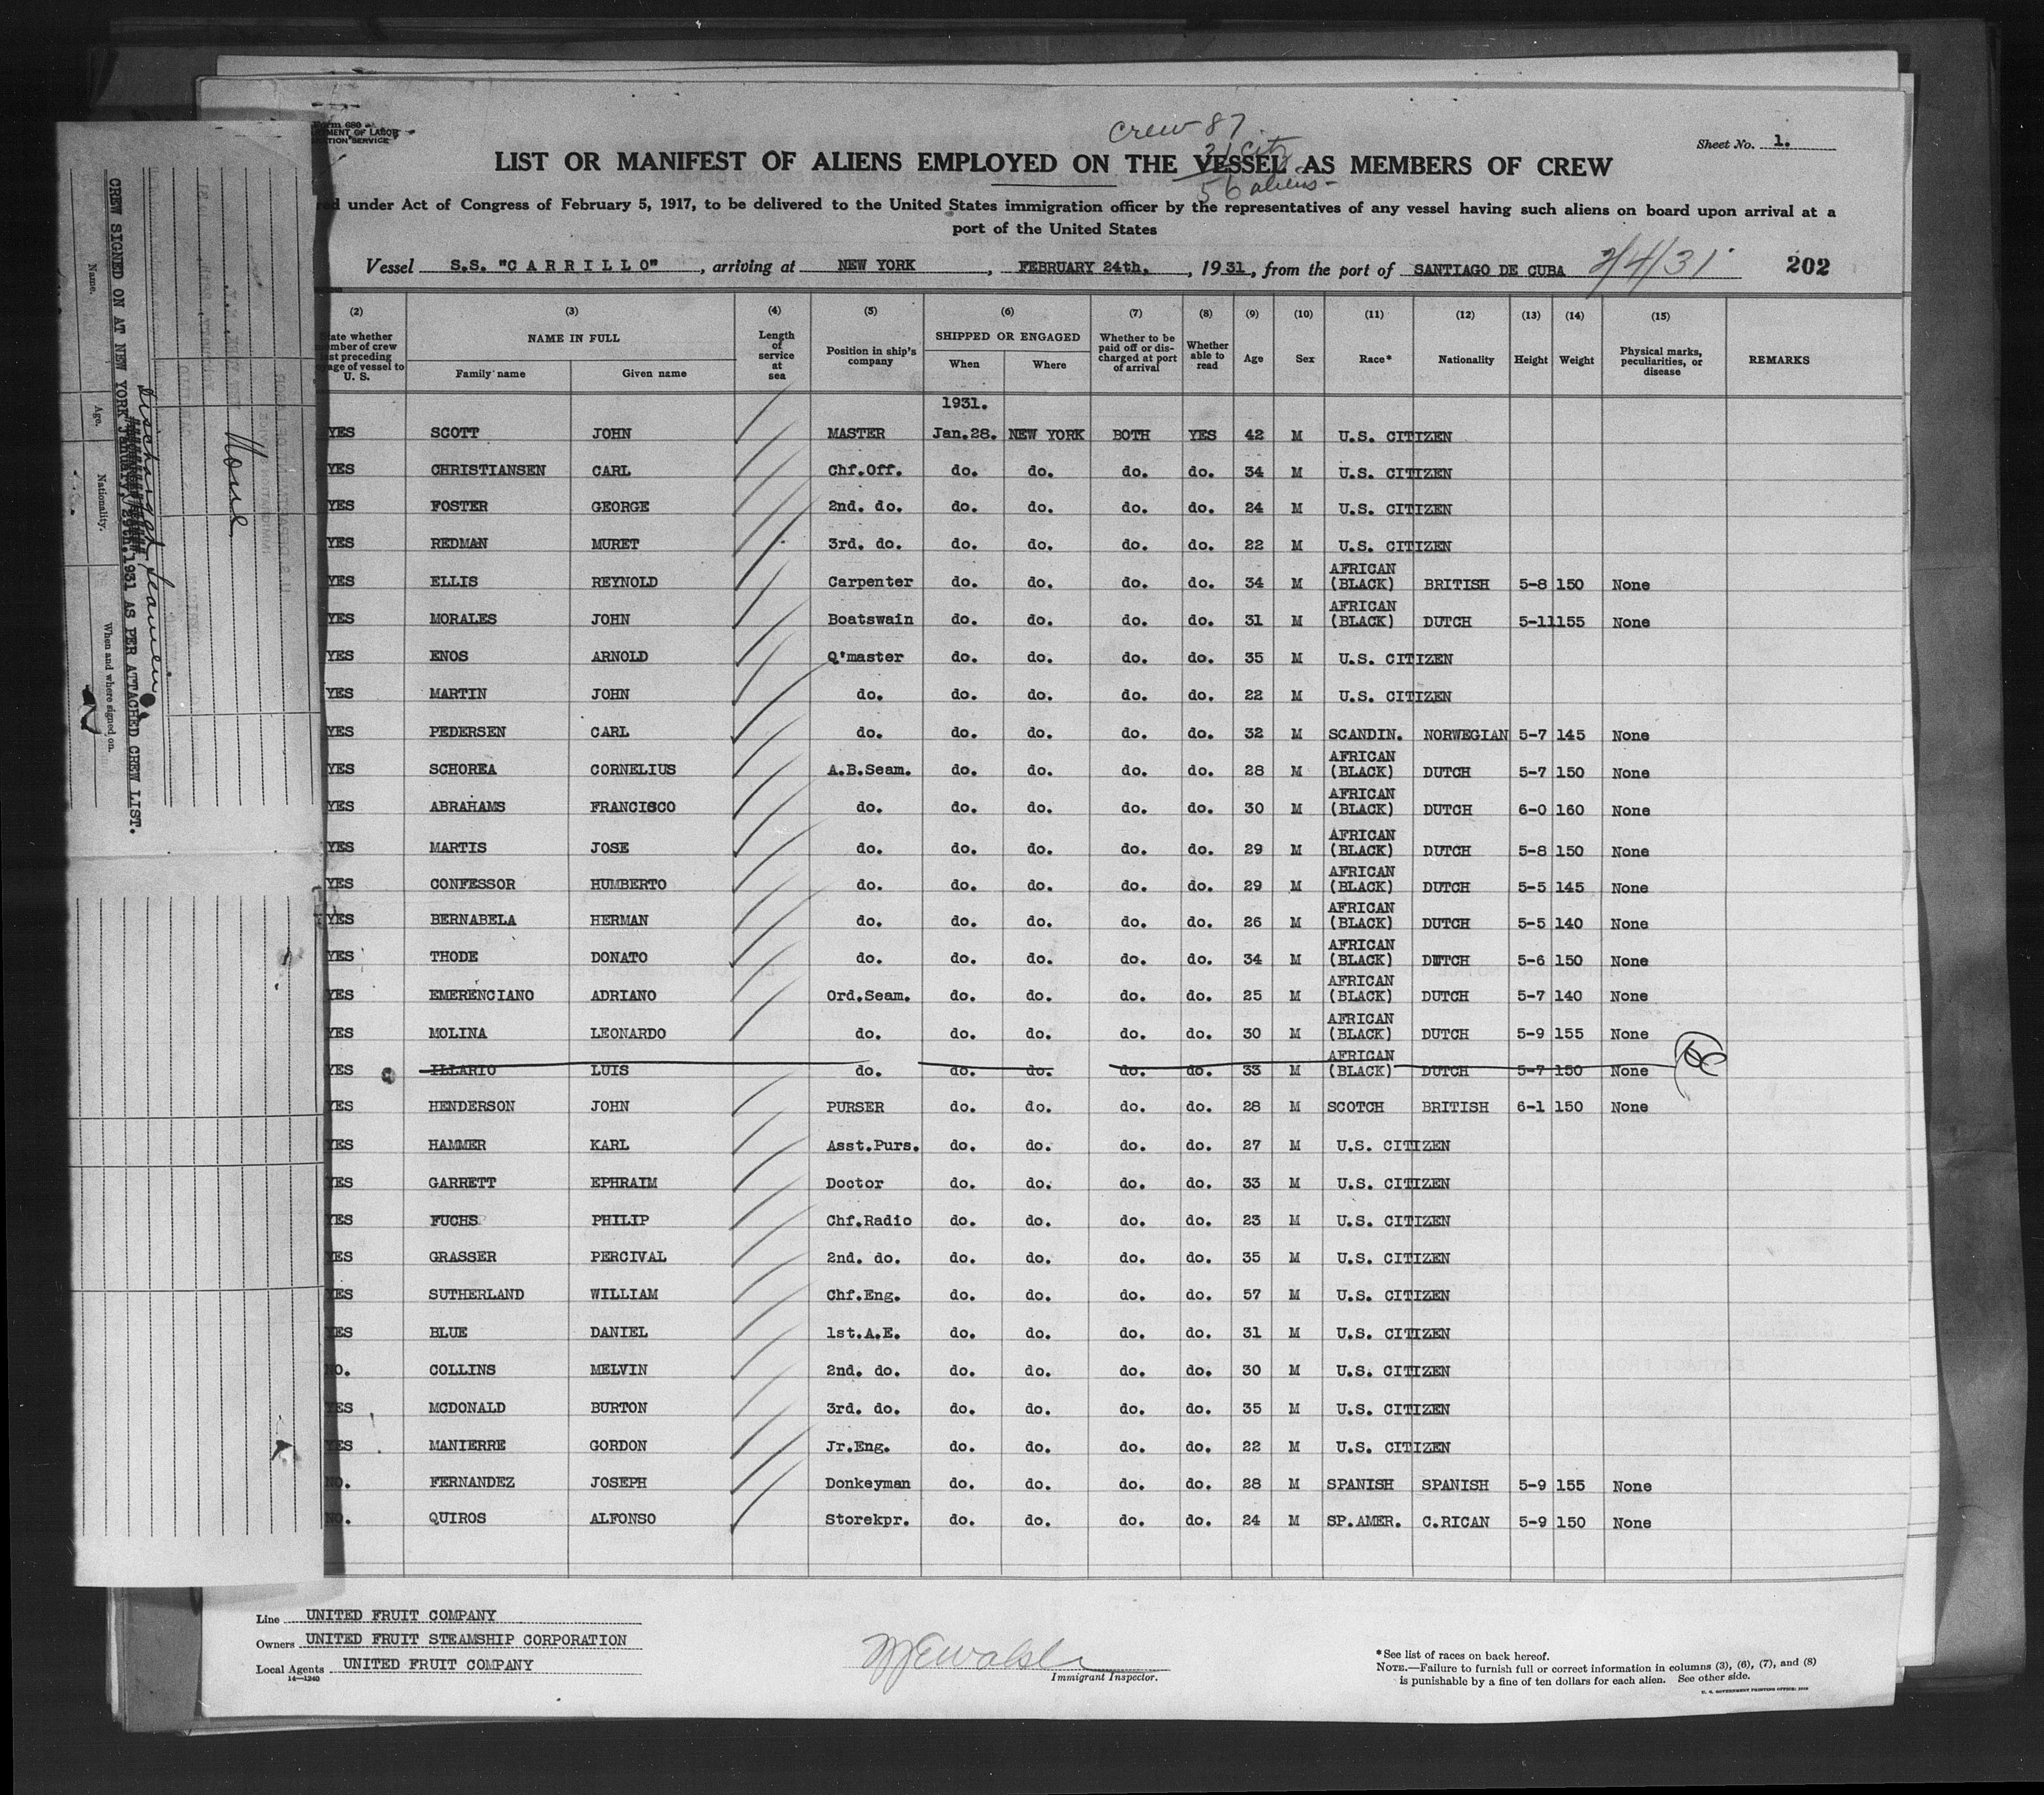 Form 680
MENT OF LABOR
ATION SERVICE
Crew 87
31 Citz
56 aliens
Sheet No. 1.
LIST OR MANIFEST OF ALIENS EMPLOYED ON THE VESSEL AS MEMBERS OF CREW
ed under Act of Congress of February 5, 1917, to be delivered to the United States immigration officer by the representatives of any vessel having such aliens on board upon arrival at a
port of the United States
Vessel S.S. "CARRILLO", arriving at NEW YORK, FEBRUARY 24th., 1931, from the port of SANTIAGO DE CUBA 2/4/31 202
(2) (3) (4) (5) (6) (7) (8) (9) (10) (11) (12) (13) (14) (15)
tate whether
mber of crew
st preceding
yage of vessel to
U. S.
NAME IN FULL
Family name Given name
Length
of
service
at
sea
Position in ship's
company
SHIPPED OR ENGAGED
When Where
Whether to be
paid off or dis-
charged at port
of arrival
Whether
able to
read
Age Sex Race* Nationality Height Weight
Physical marks,
peculiarities, or
disease
REMARKS
1931.
YES SCOTT JOHN MASTER Jan.28. NEW YORK BOTH YES 42 M U.S. CITIZEN
YES CHRISTIANSEN CARL Chf.Off. do. do. do. do. 34 M U.S. CITIZEN
YES FOSTER GEORGE 2nd. do. do. do. do. do. 24 M U.S. CITIZEN
YES REDMAN MURET 3rd. do. do. do. do. do. 22 M U.S. CITIZEN
YES ELLIS REYNOLD Carpenter do. do. do. do. 34 M AFRICAN (BLACK) BRITISH 5-8 150 None
YES MORALES JOHN Boatswain do. do. do. do. 31 M AFRICAN (BLACK) DUTCH 5-11 155 None
YES ENOS ARNOLD Q'master do. do. do. do. 35 M U.S. CITIZEN
YES MARTIN JOHN do. do. do. do. do. 22 M U.S. CITIZEN
YES PEDERSEN CARL do. do. do. do. do. 32 M SCANDIN. NORWEGIAN 5-7 145 None
YES SCHOREA CORNELIUS A.B.Seam. do. do. do. do. 28 M AFRICAN (BLACK) DUTCH 5-7 150 None
YES ABRAHAMS FRANCISCO do. do. do. do. do. 30 M AFRICAN (BLACK) DUTCH 6-0 160 None
YES MARTIS JOSE do. do. do. do. do. 29 M AFRICAN (BLACK) DUTCH 5-8 150 None
YES CONFESSOR HUMBERTO do. do. do. do. do. 29 M AFRICAN (BLACK) DUTCH 5-5 145 None
YES BERNABELA HERMAN do. do. do. do. do. 26 M AFRICAN (BLACK) DUTCH 5-5 140 None
YES THODE DONATO do. do. do. do. do. 34 M AFRICAN (BLACK) DUTCH 5-6 150 None
YES EMERENCIANO ADRIANO Ord.Seam. do. do. do. do. 25 M AFRICAN (BLACK) DUTCH 5-7 140 None
YES MOLINA LEONARDO do. do. do. do. do. 30 M AFRICAN (BLACK) DUTCH 5-9 155 None
YES ILLARIO LUIS do. do. do. do. do. 33 M AFRICAN (BLACK) DUTCH 5-7 150 None
YES HENDERSON JOHN PURSER do. do. do. do. 28 M SCOTCH BRITISH 6-1 150 None
YES HAMMER KARL Asst.Purs. do. do. do. do. 27 M U.S. CITIZEN
YES GARRETT EPHRAIM Doctor do. do. do. do. 33 M U.S. CITIZEN
YES FUCHS PHILIP Chf.Radio do. do. do. do. 23 M U.S. CITIZEN
YES GRASSER PERCIVAL 2nd. do. do. do. do. do. 35 M U.S. CITIZEN
YES SUTHERLAND WILLIAM Chf.Eng. do. do. do. do. 57 M U.S. CITIZEN
YES BLUE DANIEL 1st.A.E. do. do. do. do. 31 M U.S. CITIZEN
NO. COLLINS MELVIN 2nd. do. do. do. do. do. 30 M U.S. CITIZEN
YES MCDONALD BURTON 3rd. do. do. do. do. do. 35 M U.S. CITIZEN
YES MANIERRE GORDON Jr.Eng. do. do. do. do. 22 M U.S. CITIZEN
NO. FERNANDEZ JOSEPH Donkeyman do. do. do. do. 28 M SPANISH SPANISH 5-9 155 None
NO. QUIROS ALFONSO Storekpr. do. do. do. do. 24 M SP.AMER. C.RICAN 5-9 150 None
Line UNITED FRUIT COMPANY
Owners UNITED FRUIT STEAMSHIP CORPORATION
Local Agents UNITED FRUIT COMPANY
14—1240
Immigrant Inspector.
*See list of races on back hereof.
NOTE.—Failure to furnish full or correct information in columns (3), (6), (7), and (8)
is punishable by a fine of ten dollars for each alien. See other side.
U. S. GOVERNMENT PRINTING OFFICE
Name. Age. Nationality. When and where signed on.
CREW SIGNED ON AT NEW YORK January 29th. 1931 AS PER ATTACHED CREW LIST.
Discharged
None